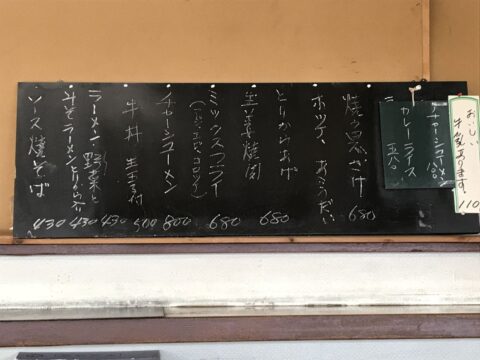 おいしい
牛乳あります。
110
チャーシューメン
カレーライス
五八〇
焼魚 さけ 680
ホッケ、あこうだい
とりからあげ 680
生姜焼肉
ミックスフライ 680
チャーシューメン 800
牛丼 生玉子付 500
ラーメン・野菜と 430
みそラーメン 430
ソース焼そば 430